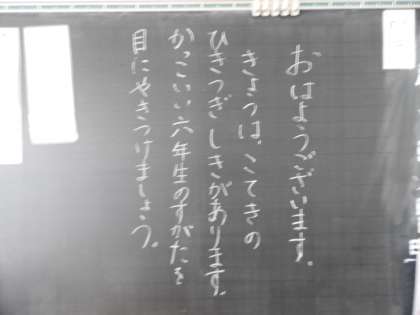 おはようございます。
きょうは、こてきの
ひきつぎしきがあります。
かっこいい六年生のすがたを
目にやきつけましょう。